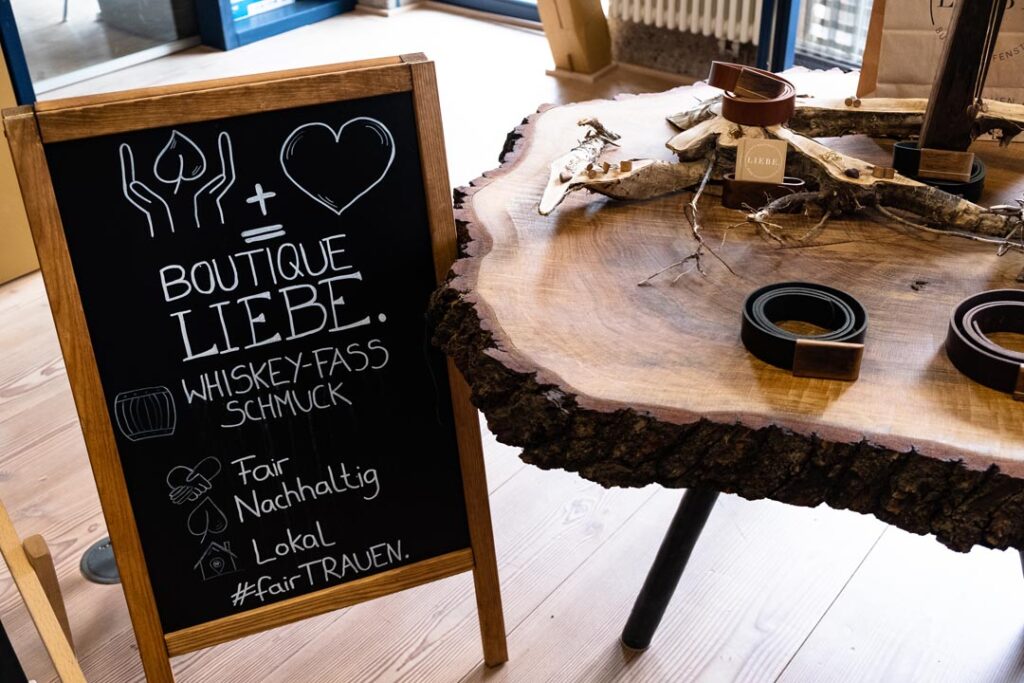 +
=
BOUTIQUE
LIEBE.
WHISKEY-FASS
SCHMUCK
Fair
Nachhaltig
Lokal
#fairTRAUEN.
LIEBE